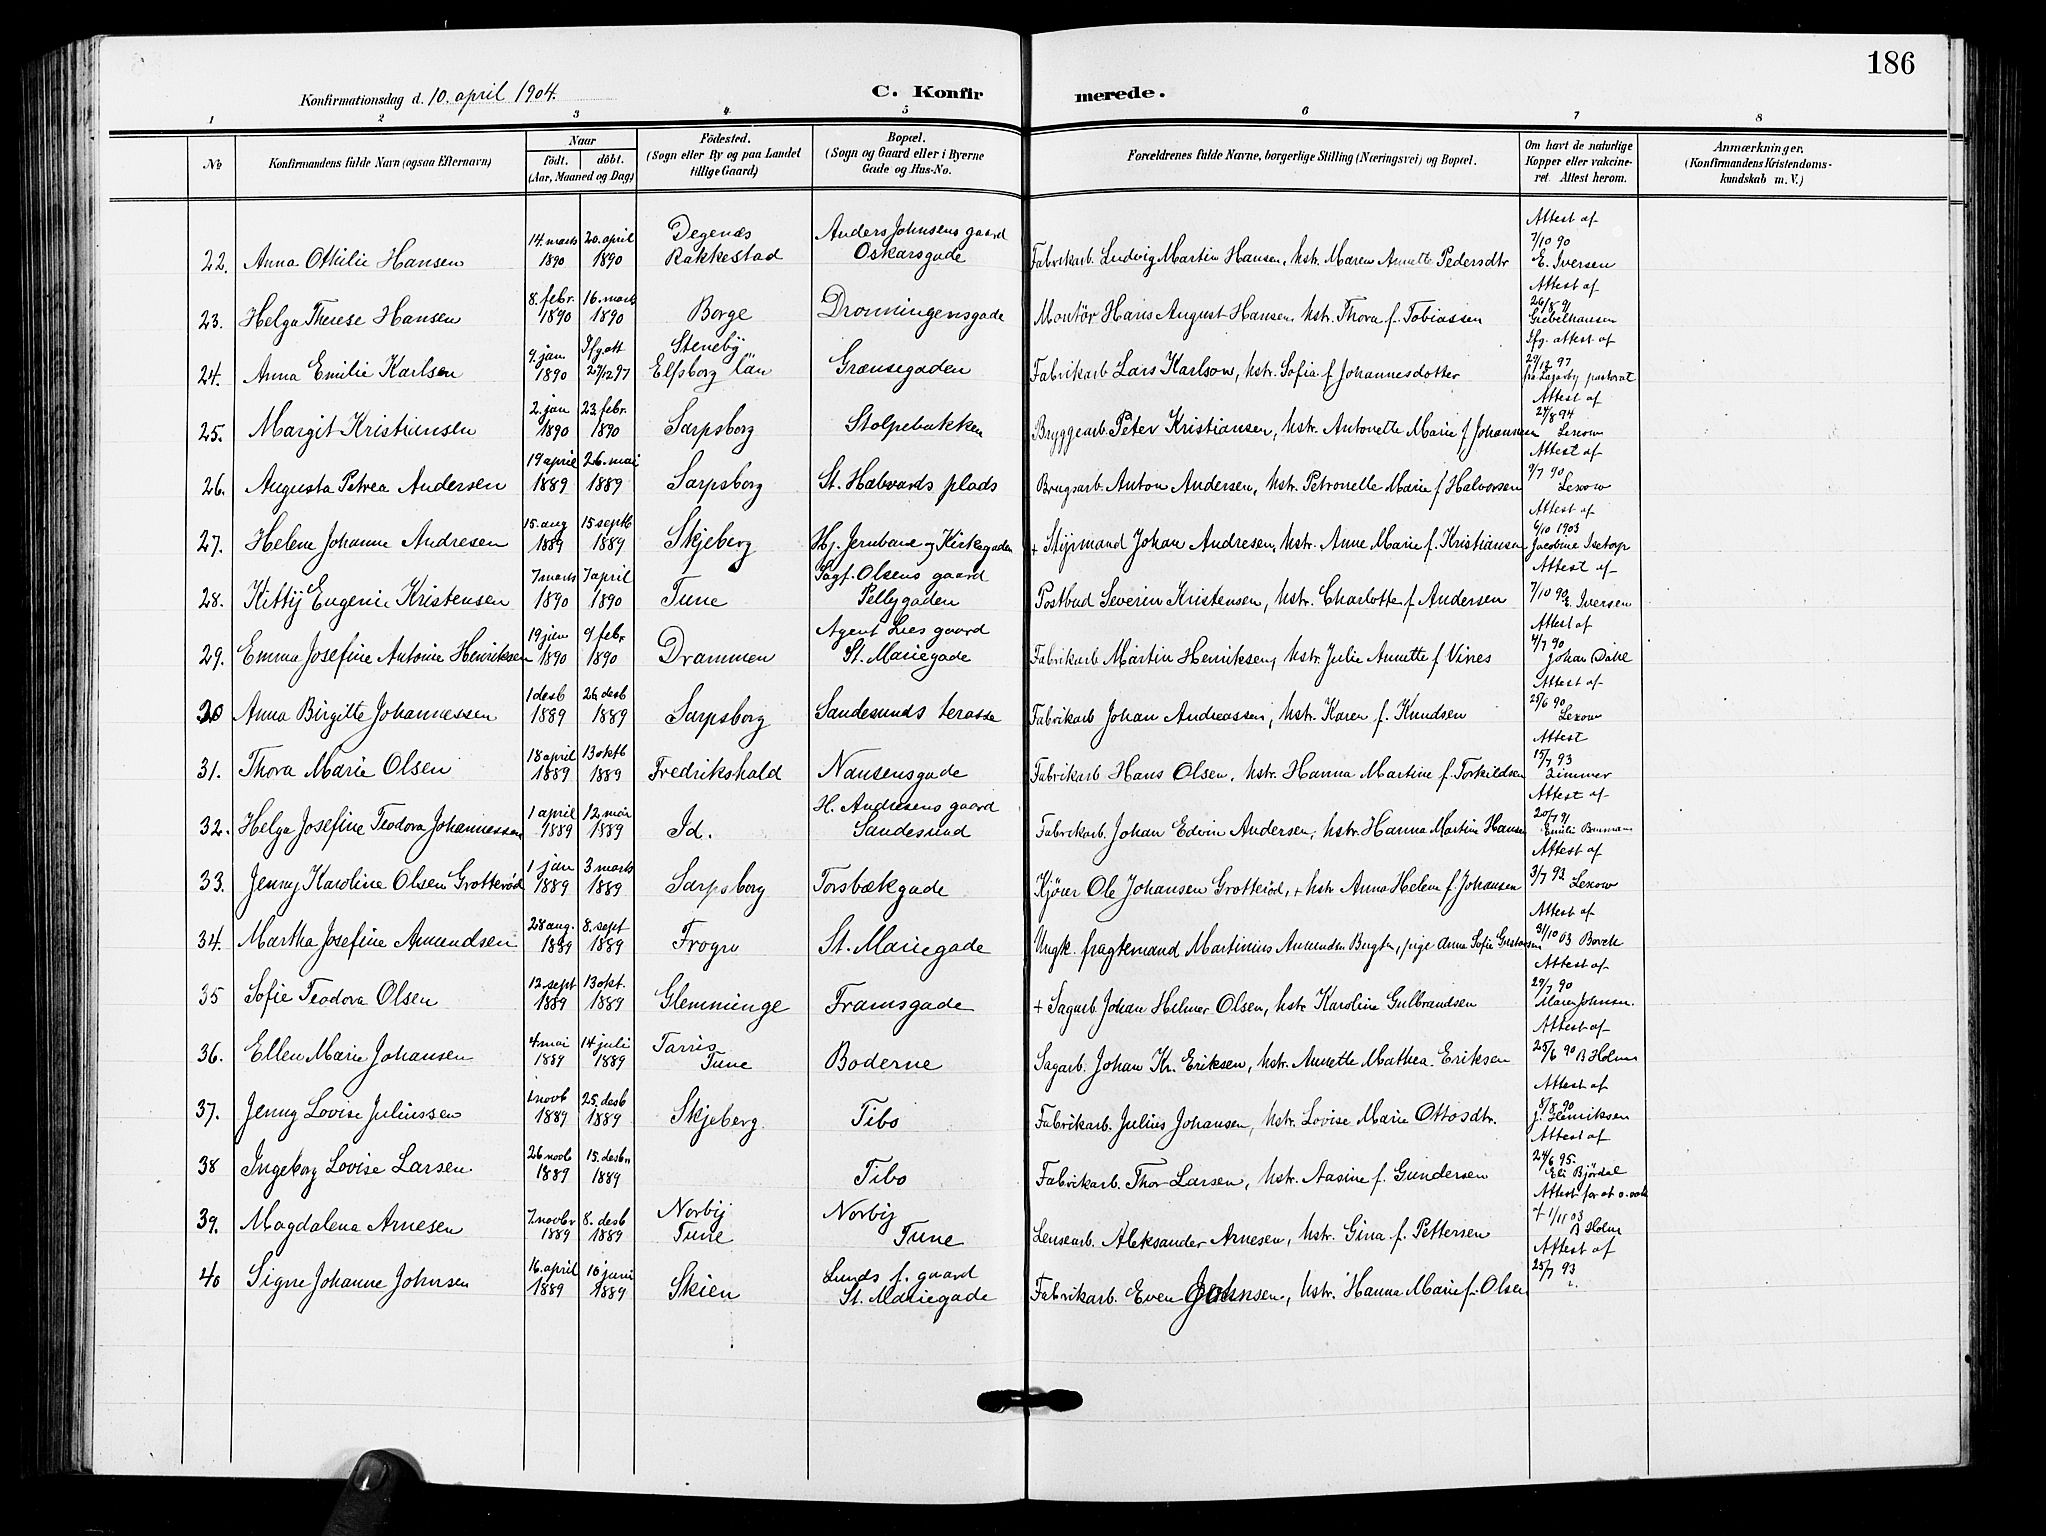 186
Konfirmationsdag d. 10. april 1904.
C. Konfirmerede.
1 2 3 4 5 6 7 8
No
Konfirmandens fulde Navn (ogsaa Efternavn)
Naar
født. døbt.
(Aar, Maaned og Dag)
Födested.
(Sogn eller By og paa Landet
tillige Gaard)
Bopæl.
(Sogn og Gaard eller i Byerne
Gade og Hus-No.
Forældrenes fulde Navne, borgerlige Stilling (Næringsvei) og Bopæl.
Om havt de naturlige
Kopper eller vakcine-
ret. Attest herom.
Anmærkninger.
(Konfirmandens Kristendoms-
kundskab m. V.)
22. Anna Othilie Hansen 14. marts 1890 20. april 1890 Degenæs Rakkestad Anders Johnsens gaard Oskarsgade Fabrikarb. Ludvig Martin Hansen, hstr. Maren Annette Pedersdtr Attest af 7/10 90 E. Iversen
23. Helga Therese Hansen 8. febr. 1890 16. marts 1890 Borge Dronningensgade Montör Hans August Hansen, hstr. Thora f. Tobiassen Attest af 26/8 91 Giebelhausen
24. Anna Emilie Karlsen 9. jan 1890 Ifg. att 29/12 97 Steneby Elfsborg län Grænsegaden Fabrikarb Lars Karlson, hstr. Sofia f Johannesdotter Ifg. attest af 29/12 97 fra pastorat
25. Margit Kristiansen 2. jan 1890 23. febr. 1890 Sarpsborg Stolpebakken Bryggearb. Peter Kristiansen, hstr. Antonette Marie f Johansen Attest af 24/8 94 Lexow
26. Augusta Petrea Andersen 19 april 1889 26. mai 1889 Sarpsborg St. Halvards plads Brugsarb. Anton Andersen, hstr. Petronelle Marie f Halvorsen Attest af 9/7 90 Lexow
27. Helene Johanne Andresen 15. aug 1889 15. septb 1889 Skjeberg Hj. Jernbane og Kirkegaden + Styrmand Johan Andresen, hstr. Anne Marie f. Kristiansen Attest af 6/10 1903 Jacobine Isetorp
28. Kitty Eugenie Kristensen 7 marts 1890 7 april 1890 Tune Sagf. Olsens gaard Pellygaden Postbud Severin Kristensen, hstr. Charlotte f. Andersen Attest af 7/10 90 E. Iversen
29. Emma Josefine Antonie Henriksen 19 jan 1890 9 febr. 1890 Drammen Agent Lies gaard St. Mariegade Fabrikarb Martin Henriksen, hstr. Julie Annette f Vines Attest af 4/7 90 Johan Dahl
30 Anna Birgitte Johannessen 1 desb 1889 26 desb 1889 Sarpsborg Sandesunds terasse Fabrikarb Johan Andreassen, hstr. Karen f. Knudsen Attest af 25/6 90 Lexow
31. Thora Marie Olsen 18 april 1889 13 oktb 1889 Fredrikshald Nansensgade Fabrikarb Hans Olsen, hstr. Hanna Martine f. Torkildsen Attest 15/7 93 Zimmer
32. Helga Josefine Teodora Johannessen 1 april 1889 12, mai 1889 Id. H. Andresens gaard Sandesund Fabrikarb. Johan Edvin Andersen, hstr. Hanna Martine Hansen Attest af 20/7 91 Emilie
33. Jenny Karoline Olsen Grotterød 1 jan 1889 3 marts 1889 Sarpsborg Torsbækgade Kjører Ole Johansen Grotterød, + hstr Anna Helene f. Johansen Attest af 3/7 93 Lexow
34. Martha Josefine Amundsen 28 aug. 1889 8. sept 1889 Frogn St. Mariegade Ungk. fragtemand Martinius Amundsen, pige Anna Sofie Gustavsen Attest af 31/10 03
35 Sofie Teodora Olsen 12. sept 1889 13 okt. 1889 Glemminge Framsgade + Sagarb. Johan Hilmer Olsen, hstr Karoline Gulbrandsen Attest af 29/7 90 Johnsen
36. Ellen Marie Johansen 4 mai 1889 14 juli 1889 Tarris Tune Boderne Sagarb. Johan Kr. Eriksen, hstr. Annette Mathea Eriksen Attest af 25/6 90 B Holm
37. Jenny Lovise Juliussen 1 novb 1889 25. desb 1889 Skjeberg Tibo Fabrikarb. Julius Johansen, hstr. Lovise Marie Ottosdtr. Attest af 8/8 90 J. Henriksen
38 Ingeborg Lovise Larsen 26 novb 1889 15. desbr 1889 Tibo Fabrikarb. Thor Larsen, hstr. Aasine f. Gundersen Attest af 24/6 95. Eli Bjørdal
39. Magdalena Arnesen 7 novbr 1889 8. desb 1889 Norby Tune Norby Tune Lensearb. Aleksander Arnesen, hstr. Gina f. Pettersen Attest for at 1/11 03 B Holm
40 Signe Johanne Johnsen 16. april 1889 10 juni 1889 Skien Lunds f. gaard St. Mariegade Fabrikarb. Even Johnsen, hstr. Hanna Marie f. Olsen Attest af 25/7 93